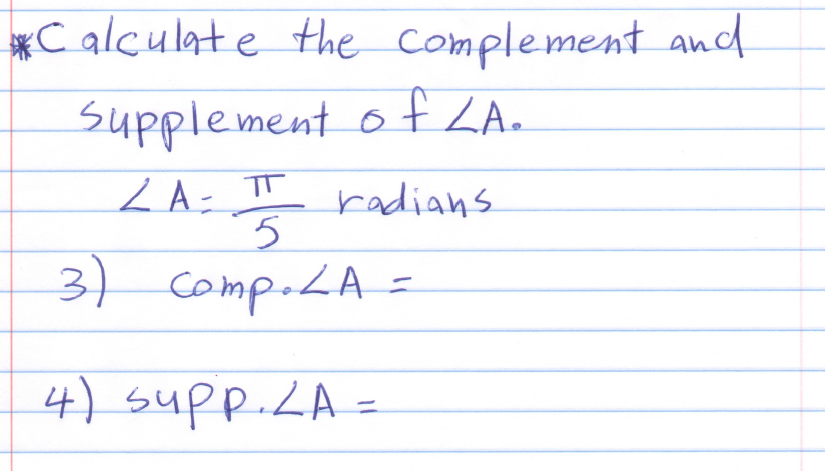 *Calculate the complement and
supplement of ∠A.
∠A = π/5 radians
3) comp.∠A =
4) supp.∠A =